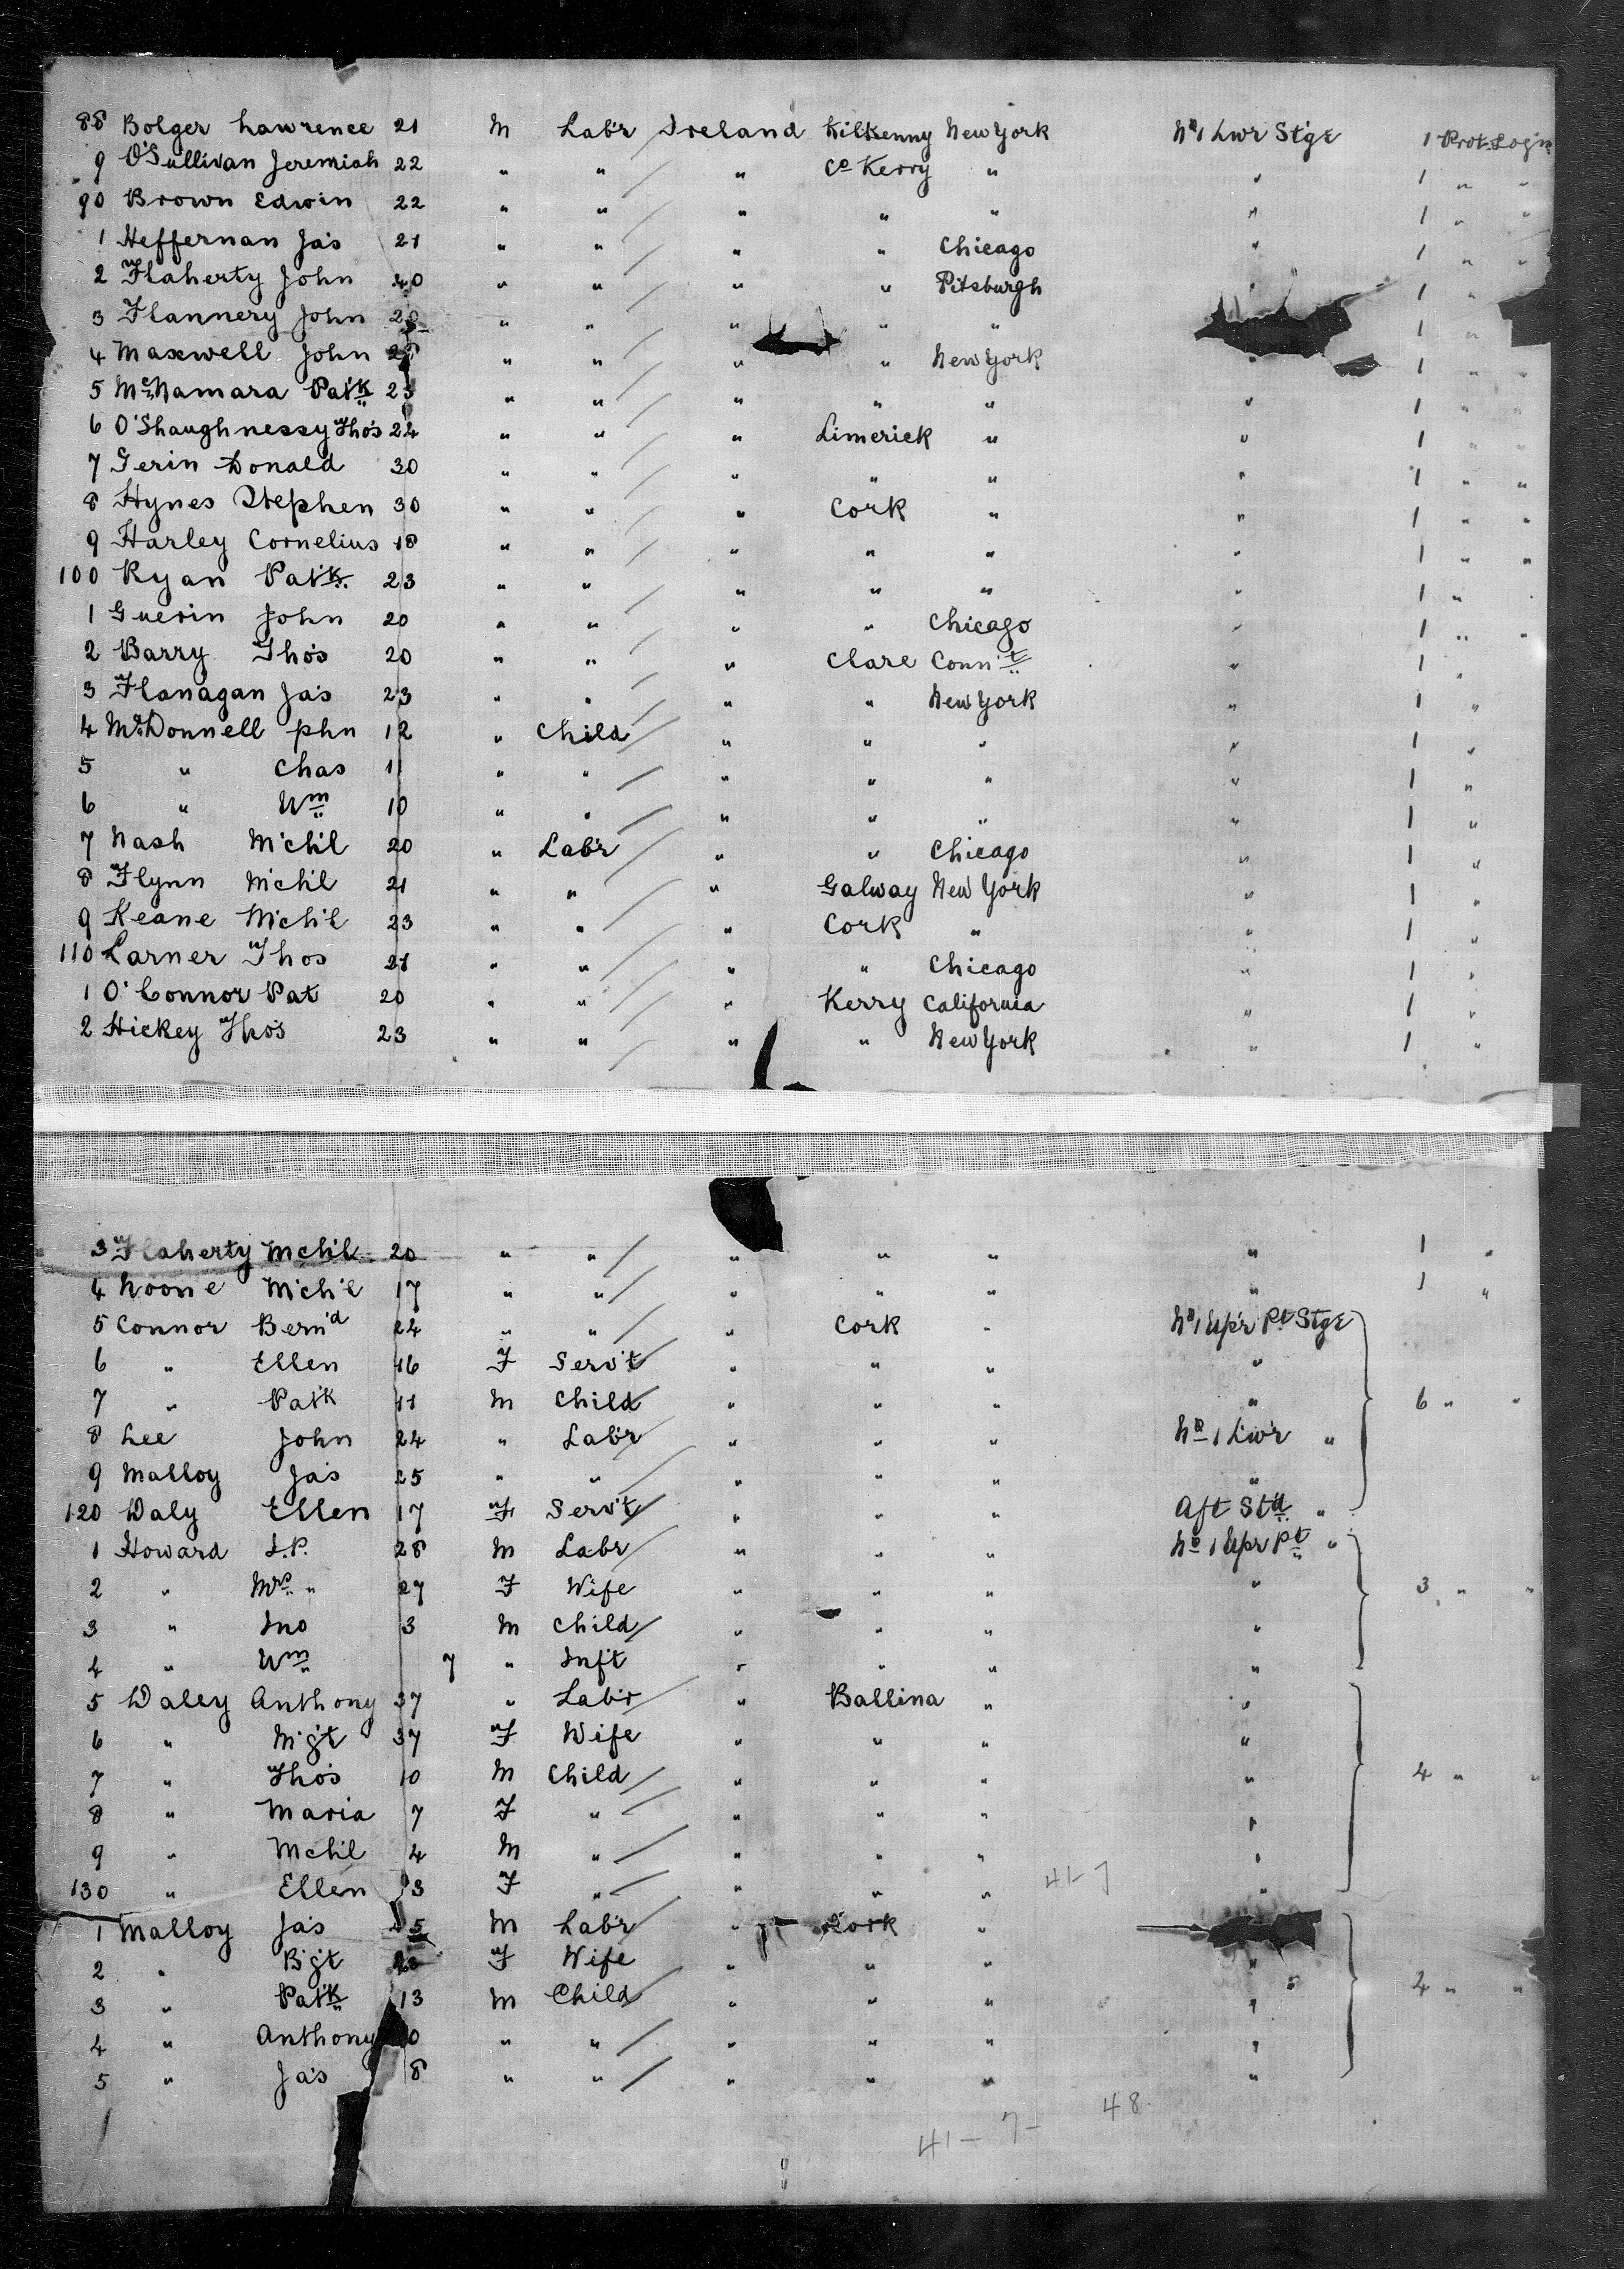 88 Bolger Lawrence 21 M Lab'r Ireland Kilkenny New York No 1 Lwr Stge 1 Prot.Sojn
9 O'Sullivan Jeremiah 22 " " " Co Kerry " " 1 " "
90 Brown Edwin 22 " " " " " " 1 " "
1 Heffernan Ja's 21 " " " " Chicago " 1 " "
2 Flaherty John 40 " " " " Pitsburgh " 1 "
3 Flannery John " " " " " 1 "
4 Maxwell John " " " " New York " 1 " "
5 McNamara Pat'k 23 " " " " " " 1 " "
6 O'Shaughnessy Tho's 24 " " " Limerick " " 1 " "
7 Gerin Donald 30 " " " " " " 1 " "
8 Hynes Stephen 30 " " " Cork " " 1 " "
9 Harley Cornelius 18 " " " " " " 1 " "
100 Ryan Pat'k. 23 " " " " " " 1 "
1 Guerin John 20 " " " " Chicago " 1 " "
2 Barry Tho's 20 " " " Clare Conn't " 1 "
3 Flanagan Ja's 23 " " " " New York " 1 "
4 McDonnell phn 12 " Child " " " " 1 "
5 " Chas 11 " " " " " " 1 "
6 " Wm 10 " " " " " " 1 "
7 Nash Mch'l 20 " Lab'r " " Chicago " 1 "
8 Flynn Mch'l 21 " " " Galway New York " 1 "
9 Keane Mch'l 23 " " " Cork " " 1 "
110 Larner Thos 21 " " " " Chicago " 1 "
1 O'Connor Pat 20 " " " Kerry California " 1 "
2 Hickey Tho's 23 " " " " New York " 1 "
3 Flaherty Mch'l 20 " " " " " " 1 "
4 Noone Mch'l 17 " " " " " " 1 "
5 Connor Bern'd 24 " " " Cork " No 1 Up'r Pt Stge
6 " Ellen 16 F Serv't " " " "
7 " Pat'k 11 M Child " " " " 6 " "
8 Lee John 24 " Lab'r " " " No 1 Lw'r "
9 Malloy Ja's 25 " " " " " "
120 Daly Ellen 17 F Serv't " " " Aft Std "
1 Howard J.P. 28 M Labr " " " No 1 Upr Pt "
2 " Mrs " 27 F Wife " " " " 3 " "
3 " Jno 3 M Child " " " "
4 " Wm 7 " Inft " " " "
5 Daley Anthony 37 " Lab'r " Ballina " "
6 " M'g't 37 F Wife " " " "
7 " Tho's 10 M Child " " " " 4 " "
8 " Maria 7 F " " " " "
9 " Mch'l 4 M " " " " "
130 " Ellen 3 F " " " " "
41-7
1 Malloy Ja's M Lab'r " Cork "
2 " B'g't F Wife " " " "
3 " Pat'k 13 M Child " " " " 2 " "
4 " Anthony 0 " " " " " "
5 " Ja's 8 " " " " " "
48
41-7-